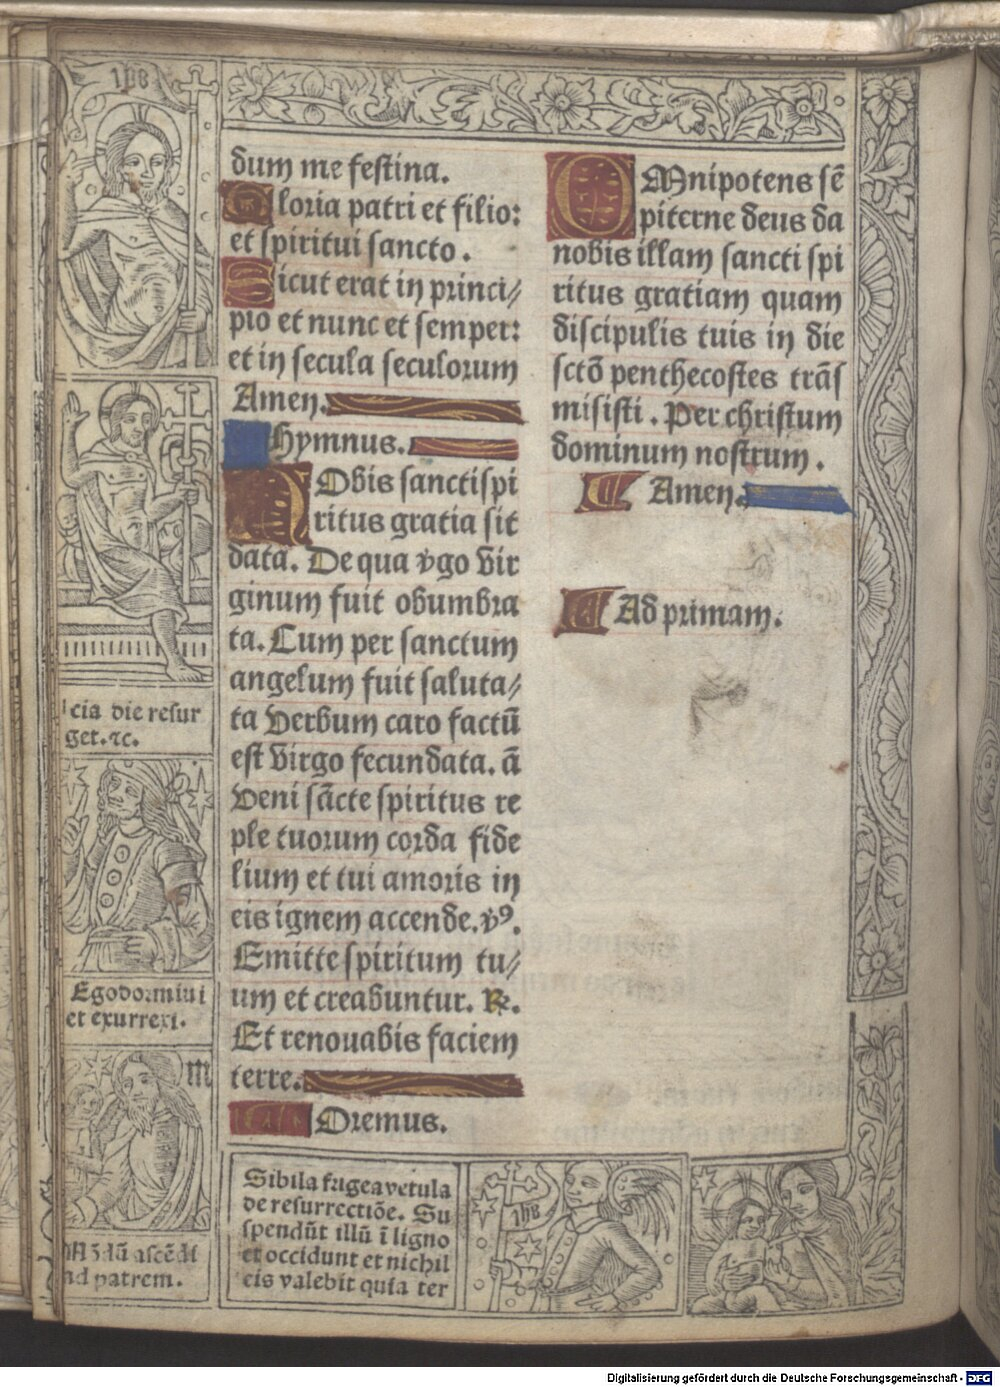 dum me festina.
Gloria patri et filio:
et spiritui sancto.
Sicut erat in princi/
pio et nunc et semper:
et in secula seculorum
Amen.
Hymnus.
NObis sancti spi
ritus gratia sit
data. De qua v̄go vir
ginum fuit obumbra
ta. Cum per sanctum
angelum fuit saluta/
ta verbum caro factū
est virgo fecundata. ā
Veni sācte spiritus re
ple tuorum corda fide
lium et tui amoris in
eis ignem accende. v̄ꝰ.
Emitte spiritum tu/
um et creabuntur. ℞.
Et renouabis faciem
terre.
Oremus.
OMnipotens sē
piterne deus da
nobis illam sancti spi
ritus gratiam quam
discipulis tuis in die
sctō penthecostes trās
misisti. Per christum
dominum nostrum.
Amen.
Ad primam.
IHS
cia die resur
get. ⁊c.
Ego dormiui
et exurrexi.
M
ascēdi
ad patrem.
Sibila frigea vetula
de resurrectiōe. Su
spendūt illū ī ligno
et occidunt et nichil
eis valebit quia ter
IHS
Digitalisierung gefördert durch die Deutsche Forschungsgemeinschaft - DFG